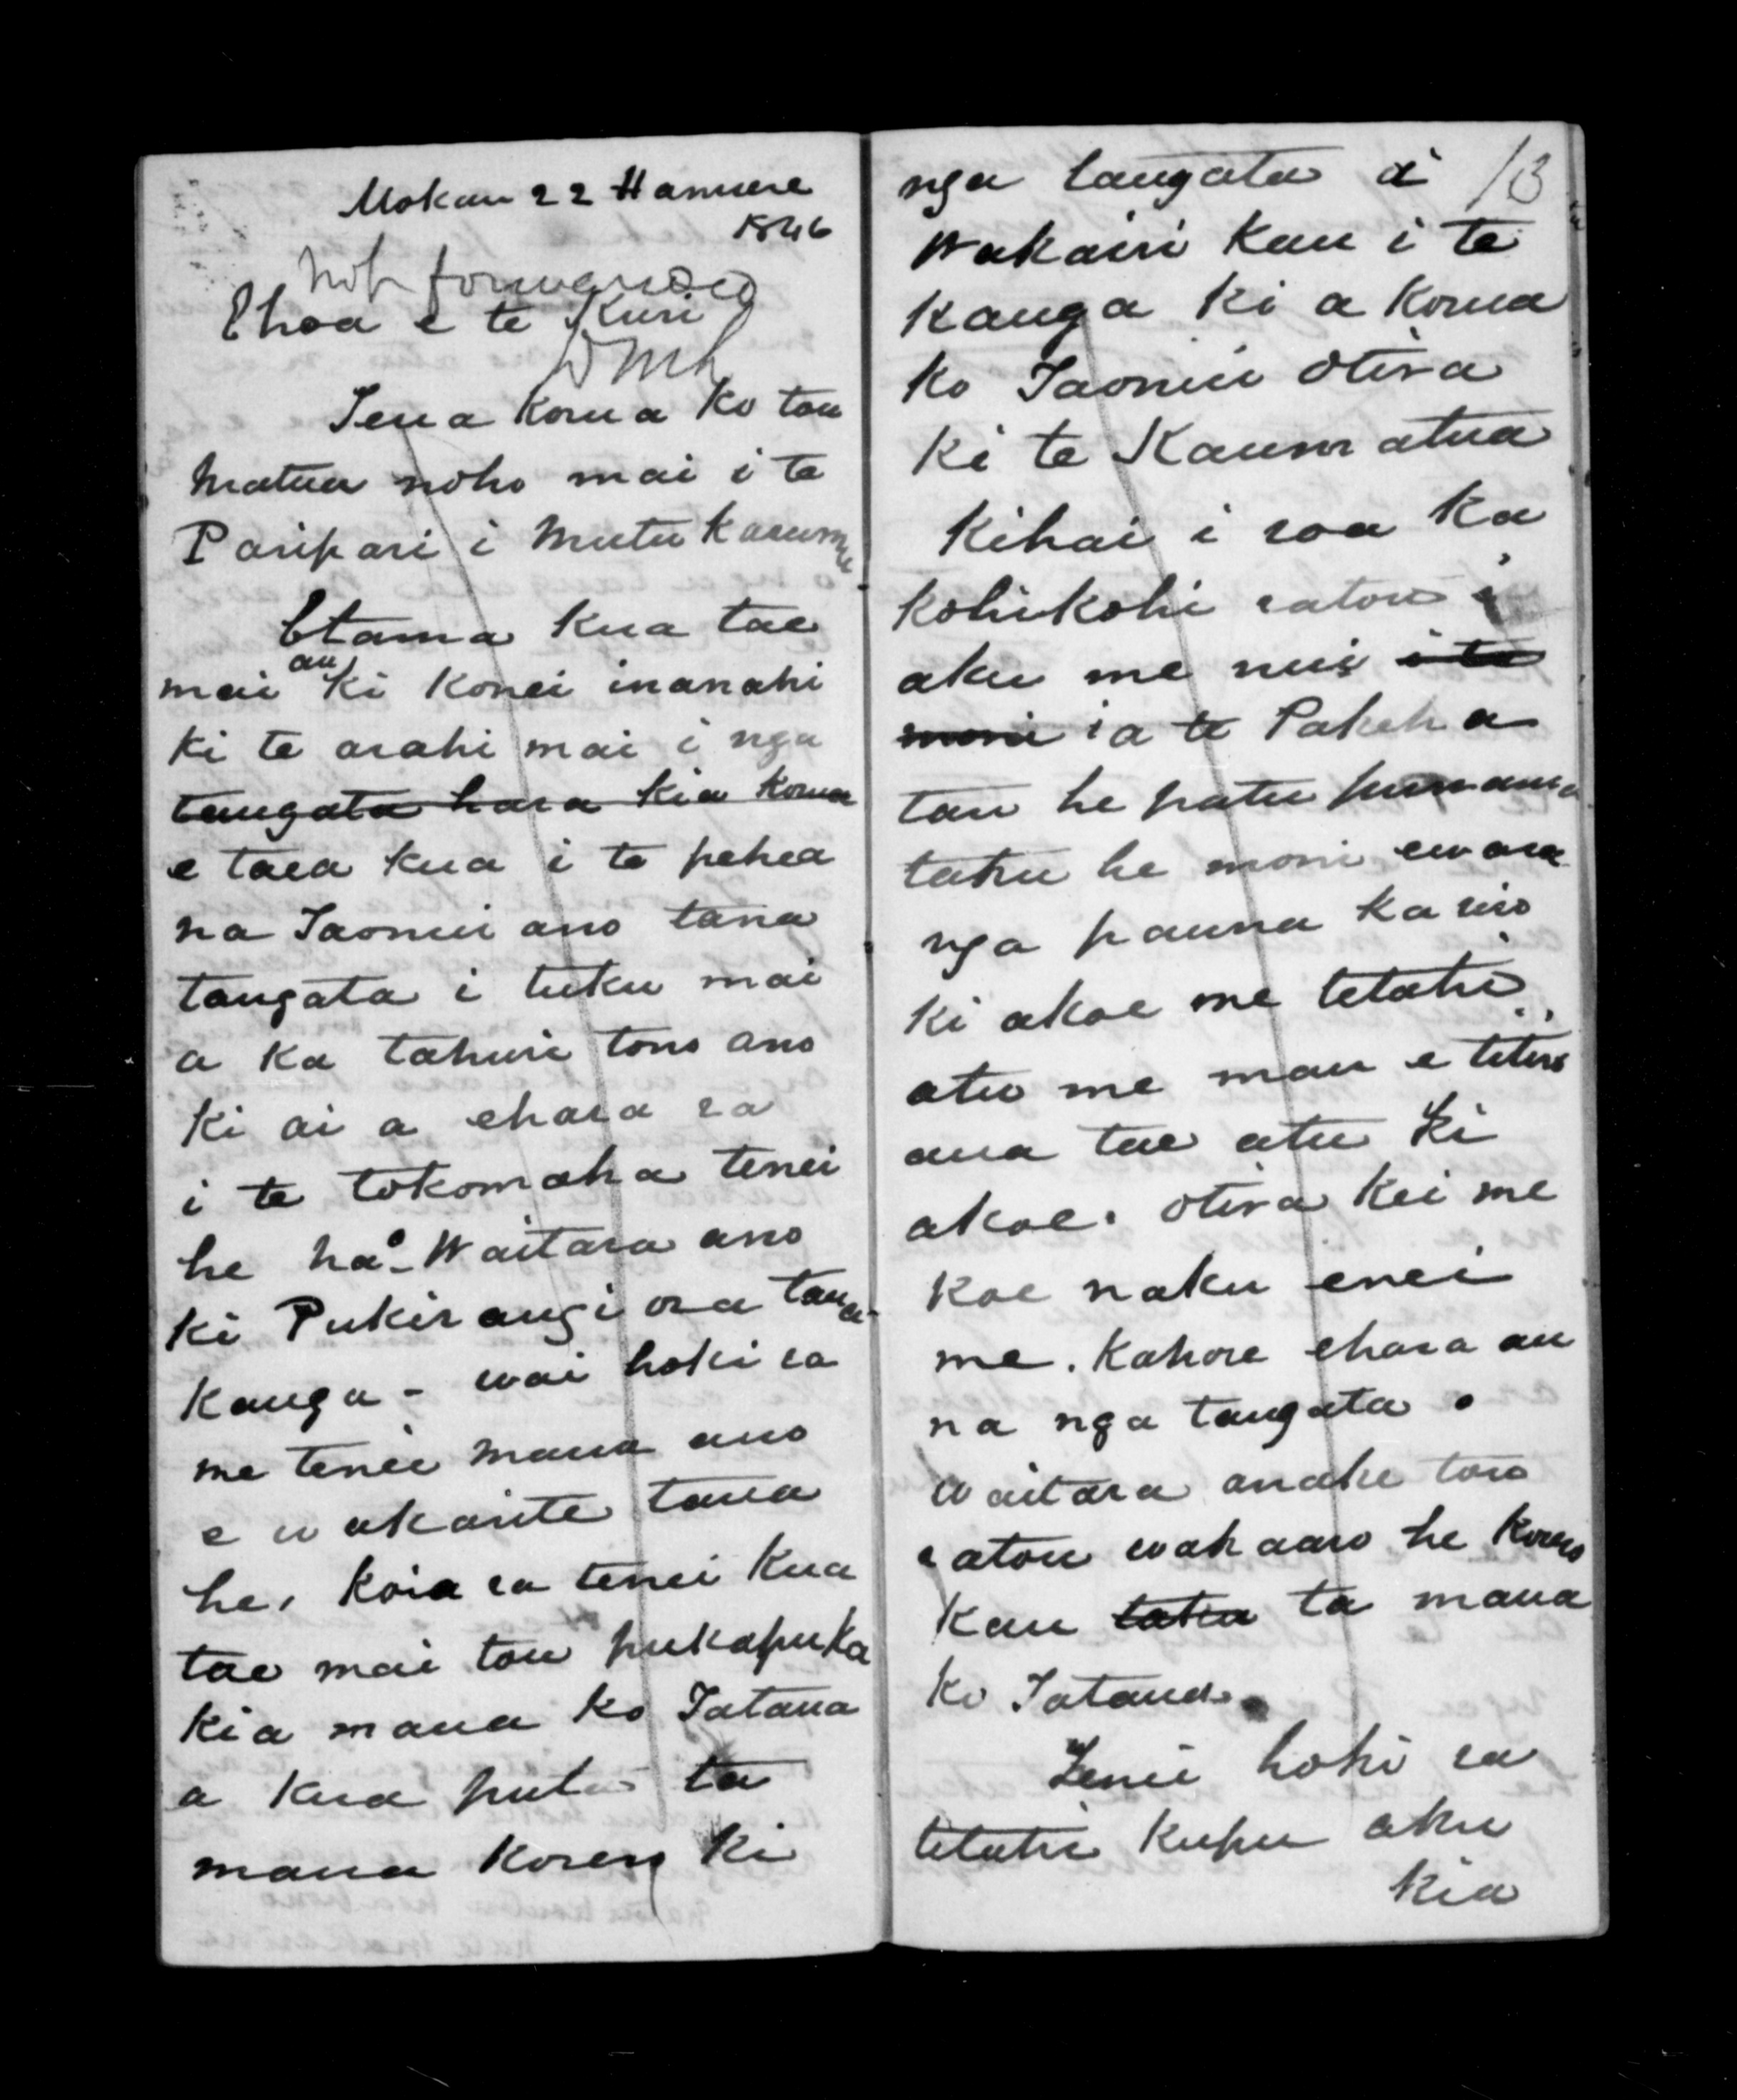 Mokau 22 Hanuere
1846
not forwarded
Ehoa e te Kuri
DMcL
Tena Korua Ko tou
Matua noho mai i te
Paripari i Mutu Karumu
Etama Kua tae
mai au ki Konei inanahi
Ki te arahi mai i nga
tangata hara Kia Korua
e taea Kua i te pehea
na Taonui ano tana
tangata i tuku mai
a Ka tahuri tono ano
Ki ai a ehara ra
i te tokomaha tenei
he na Waitara ano
Ki Pukirangiora taua
Kanga - wai hoki ra
me tenei maua ano
e wakarite taua
he. Koia ra tenei Kua
tae mai tou pukapuka
Kia maua Ko Tatana
a Kua puta ta
maua Korero Ki
nga tangata a 13
Wakairi Kau i te
Kanga Ki a Korua
Ko Taonui otira
Ki te Kaumatua
Kihai i roa Ka
Kohikohi ratou i
aku me nui i te
moni i a te Pakeha
tau he patu pounamu
taku he moni ewara
nga pauna Ka riro
Ki akoe me tetahi
atu me mau e titiro
ana tae atu Ki
akoe. otira Kei me
Koe naku enei
me. Kahore ehara au
na nga tangata o
Waitara anake tou
ratou wakaaro he Korero
Kau taku ta maua
Ko Tatana.
Tenei hoki ra
tetahi Kupu aku
Kia